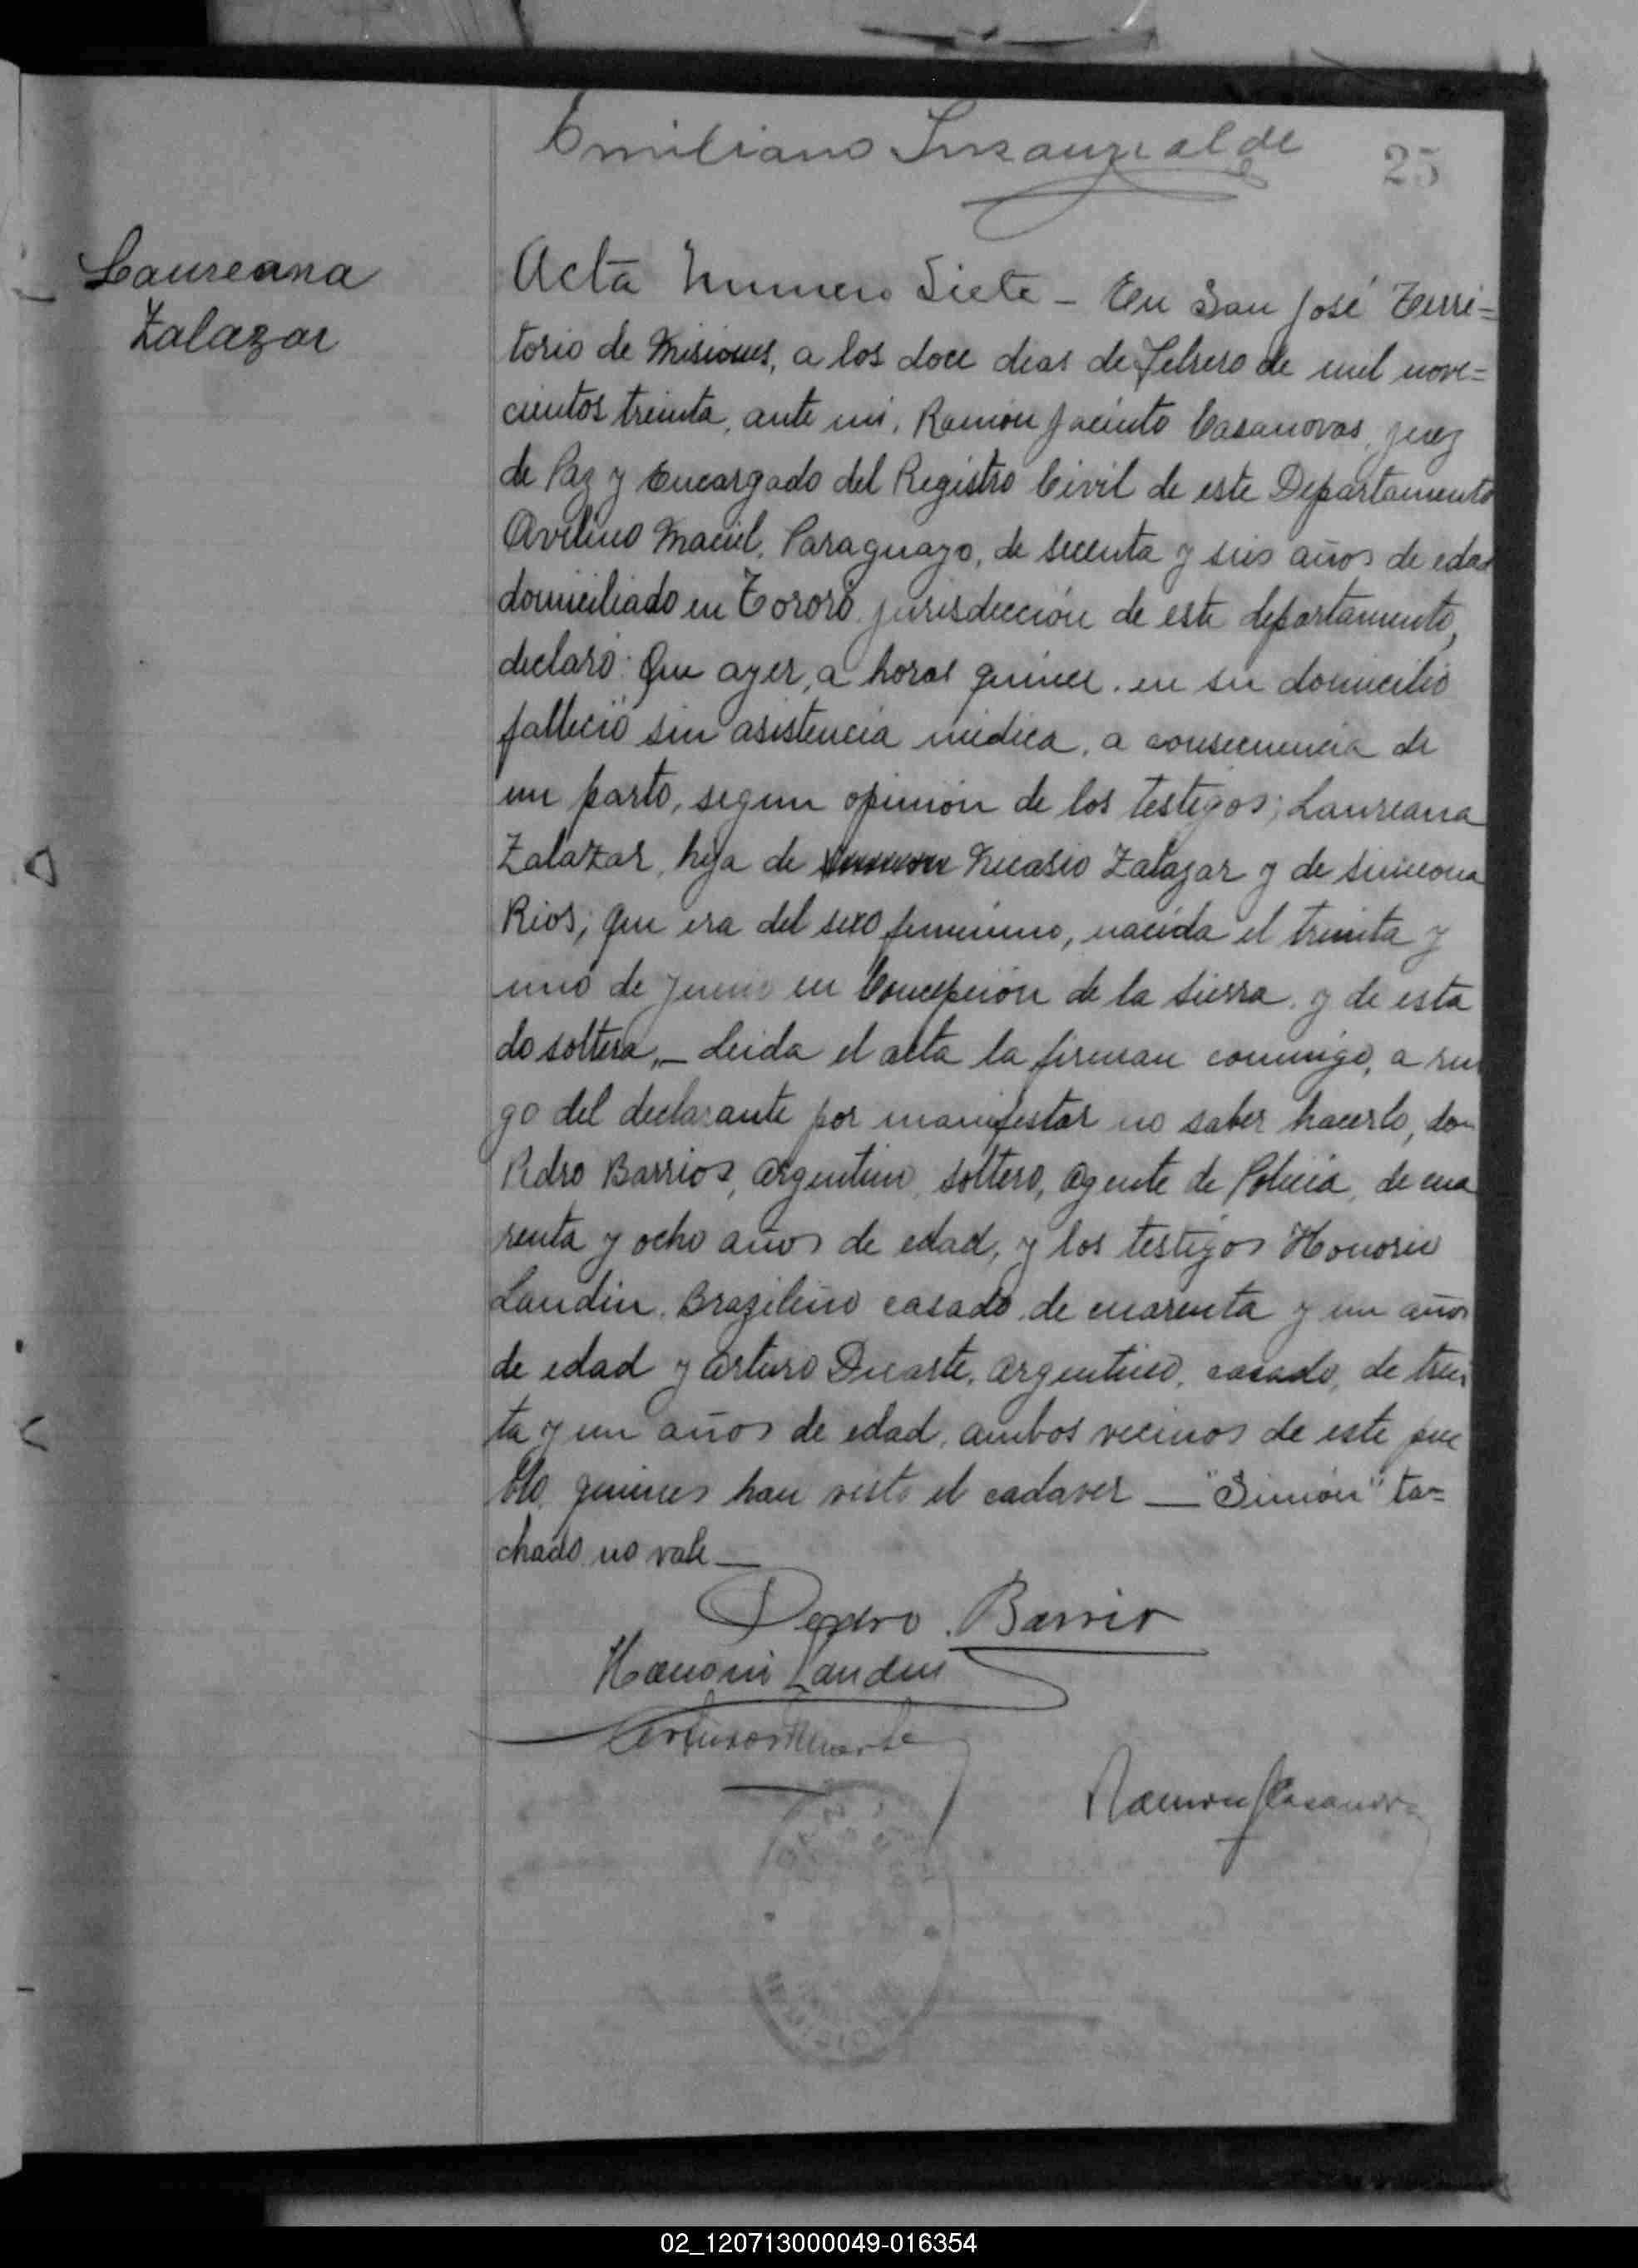 Emiliano Insaurralde
25
Laureana
Zalazar
Acta Numero Siete - En San José Terri=
torio de Misiones, a los doce dias de Febrero de mil nove=
cientos treinta, ante mi, Ramón Jacinto Casanovas, juez
de Paz y Encargado del Registro Civil de este Departamento
Avelino Maciel, Paraguayo, de secenta y seis años de edad
domiciliado en Tororó jurisdicción de este departamento,
declaró: Que ayer, a horas quince, en su domicilio
falleció sin asistencia médica, a consecuencia de
un parto, segun opinión de los testigos; Laureana
Zalazar, hija de Simeon Nicasio Zalazar y de Simeona
Rios; que era del sexo femenino, nacida el treinta y
uno de Junio en Concepción de la Sierra, y de esta
do soltera,_ Leida el acta la firman conmigo, a rue
go del declarante por manifestar no saber hacerlo, don
Pedro Barrios, Argentino, soltero, Agente de Policia, de cua
renta y ocho años de edad, y los testigos Honorio
Landin, Brazileño casado, de cuarenta y un años
de edad y Arturo Duarte, Argentino, casado, de trein
ta y un años de edad, ambos vecinos de este pue
blo, quienes han visto el cadaver _ "Simón" ta=
chado no vale_
Pedro Barrio
Landin
Arturo Duarte
Ramon J Casanova
MISIONES
02_120713000049-016354